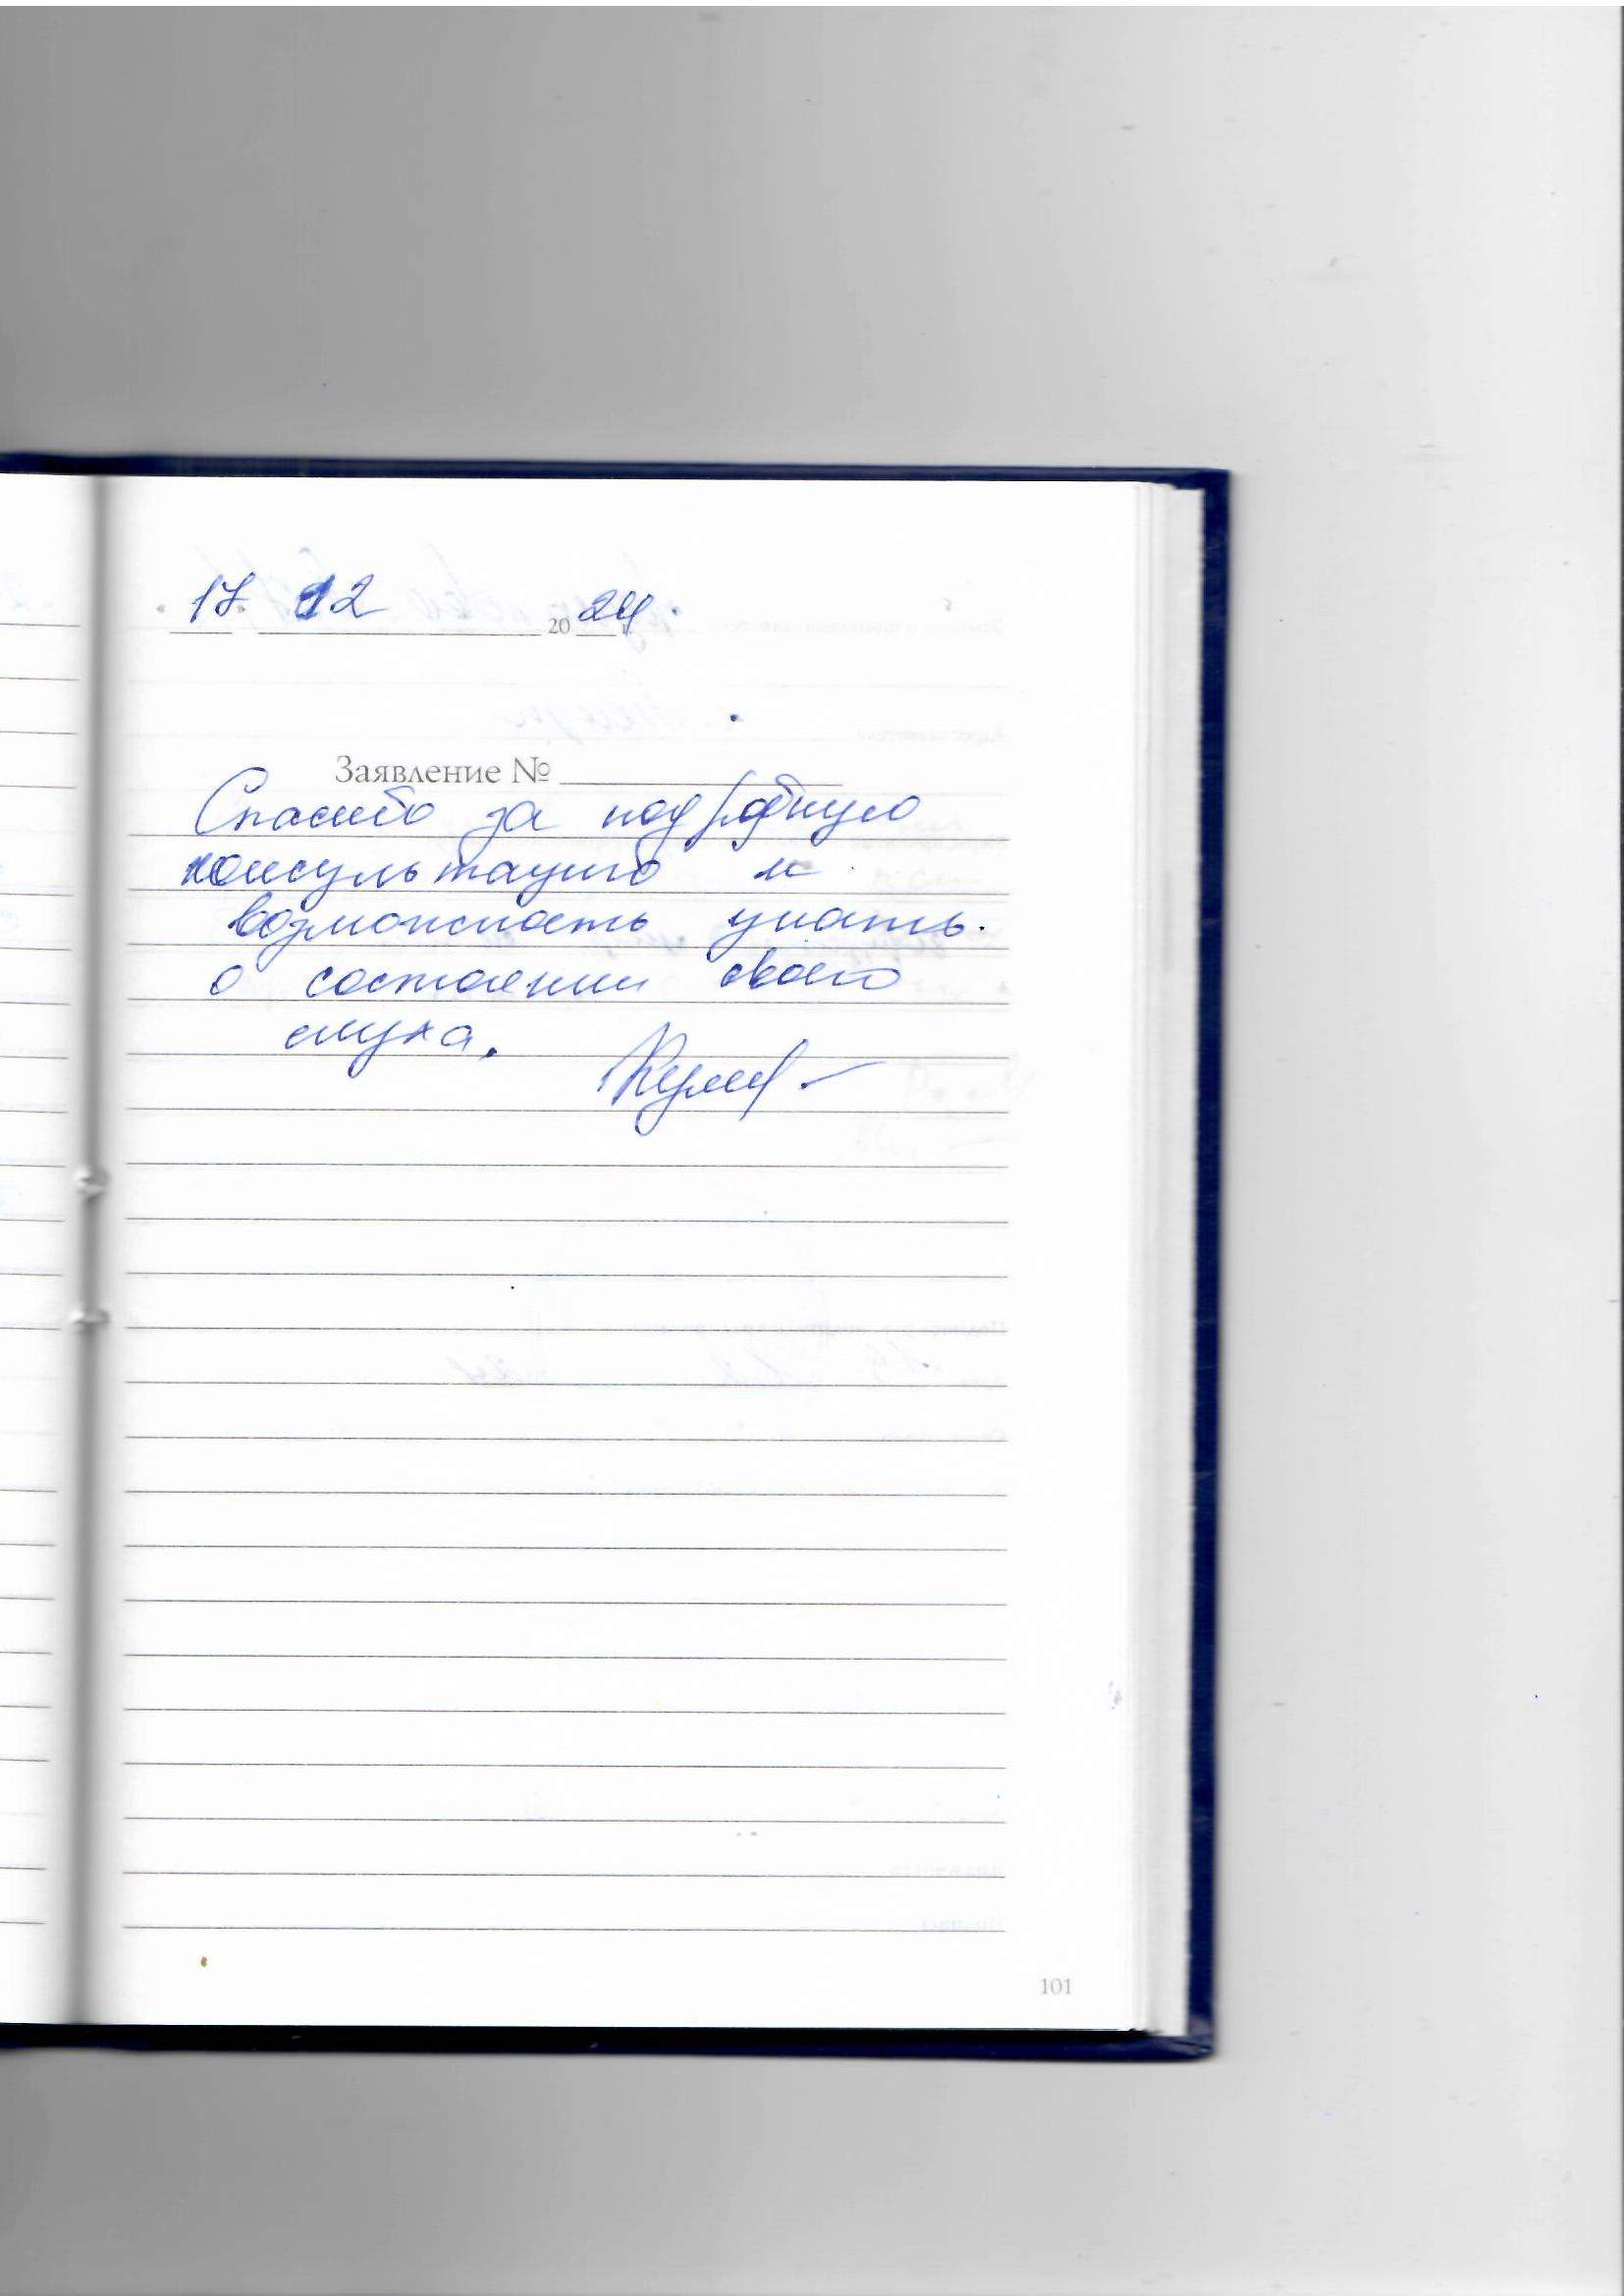 17. 12 2024.
Заявление №
Спасибо за подробную
консультацию и
возможность узнать
о состоянии своего
слуха.
101